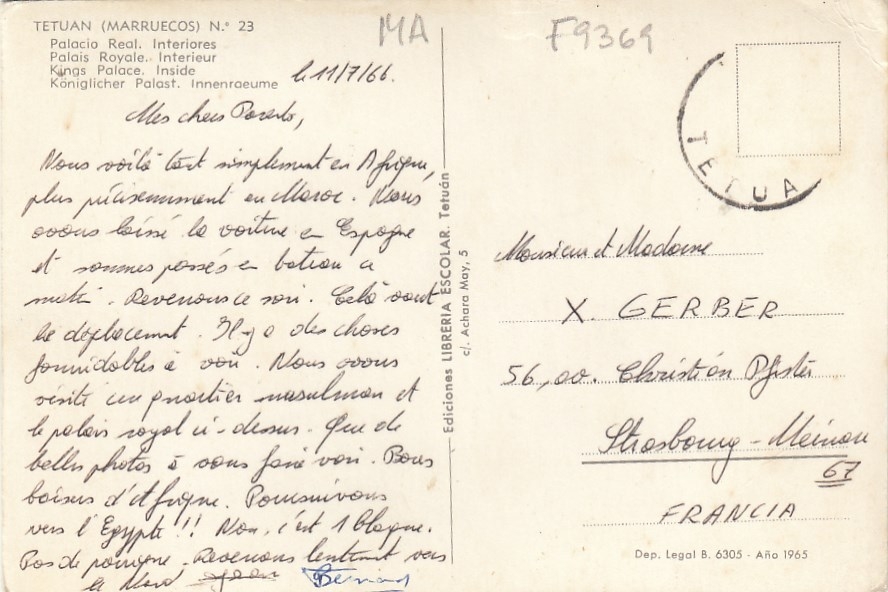 TETUAN (MARRUECOS) N.° 23
Palacio Real. Interiores
Palais Royale. Interieur
Kings Palace. Inside
Königlicher Palast. Innenraeume
le 11/7/66.
Mes chers Parents,
Nous voilà tout simplement en Afrique,
plus précisemment en Maroc. Nous
avons laissé la voiture en Espagne
et sommes passés en bateau ce
matin. Revenons ce soir. Celà vaut
le déplacement. Il y a des choses
formidables à voir. Nous avons
visité un quartier musulman et
le palais royal ci-dessus. Que de
belles photos à vous faire voir. Bons
baisers d'Afrique. Poursuivons
vers l'Egypte!! Non, c'est 1 blague.
Pas de panique. Revenons lentement vers
le Nord
Bernard
Ediciones LIBRERIA ESCOLAR. Tetuán
c/. Achara May, 5
MA
F9369
TETUA
Monsieur et Madame
X. GERBER
56, av. Christian Pfister
Strasbourg - Meinau
67
FRANCIA
Dep. Legal B. 6305 - Año 1965